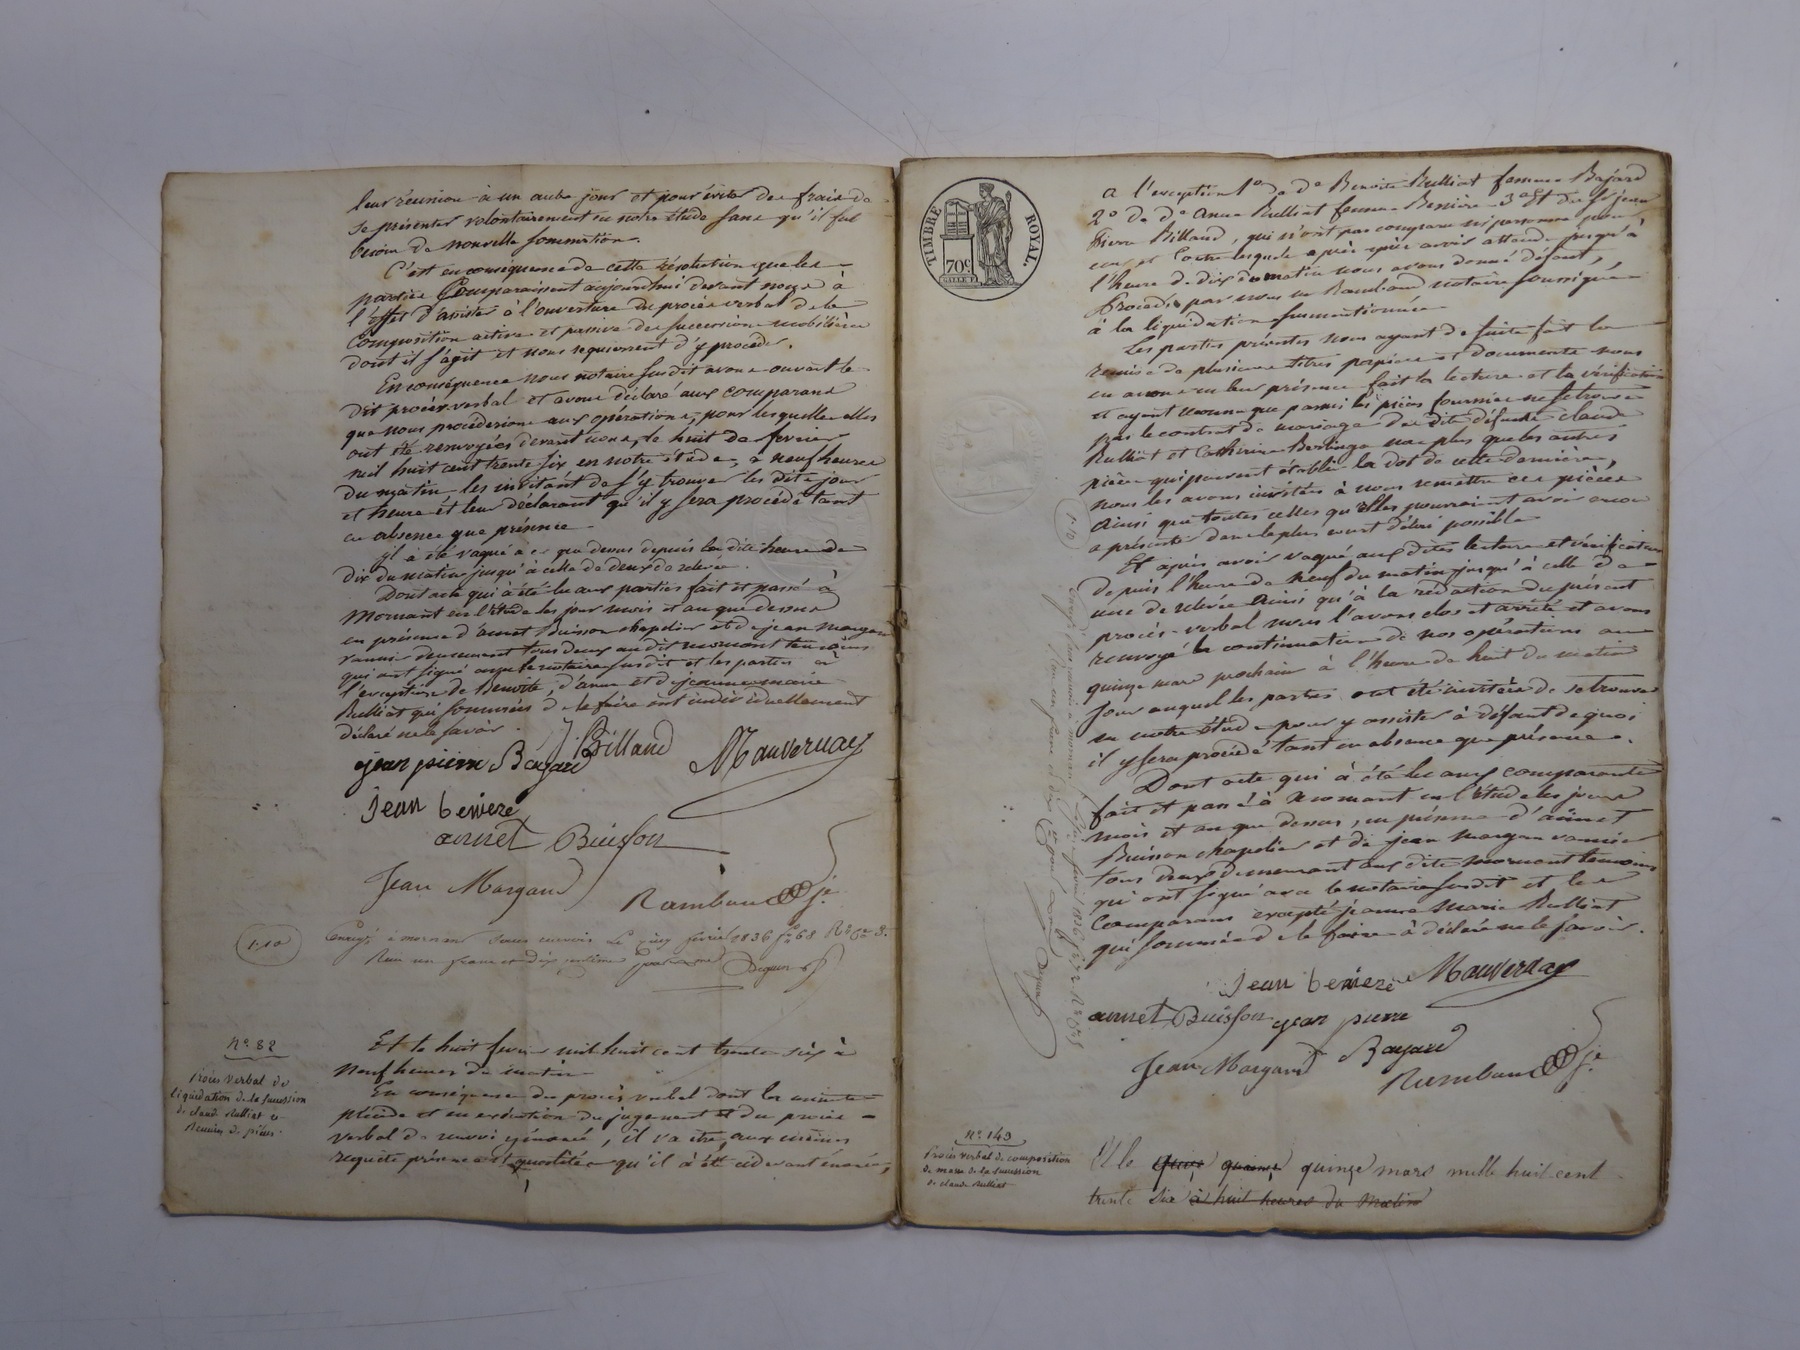 leur réunion à un autre jour et pour éviter des frais de
se présenter volontairement en notre étude sans qu'il fut
besoin de nouvelle sommation.
C'est en conséquence de cette résolution que les
parties Comparaissent aujourd'hui devant nous à
l'effet d'assister à l'ouverture du procès verbal de la
composition active et passive des successions mobilières
dont il s'agit et nous requierrent d'y procéder.
En conséquence nous notaire susdit avons ouvert le
dit procès-verbal et avons déclaré aux comparans
que nous procéderions aux opérations, pour lesquelles elles
ont été renvoyées devant nous, le huit de fevrier
mil huit cent trente six en notre étude, à neuf heures
du matin, les invitant de s'y trouver les dits jour
et heure et leur déclarant qu'il y sera procédé tant
en absence que présence
il à été vaqué à ce que dessus depuis la dite heure de
dix du matin jusqu'à celle de deux de relevée.
Dont acte qui à été lu aux parties fait et passé à
Mornant en l'étude les jour mois et an que dessus
en présence d'aunet Buisson chapelier et de jean Margand
vannier demeurant tous deux au dit mornant temoins
qui ont signé avec le notaire susdit et les parties à
l'exception de Benoite, d'anne et de jeanne marie
Rulliat qui sommées de le faire ont individuellement
déclaré ne le savoir.
jean pierre Bajard J Billand Mauvernay
jean beniere
aunet Buisson
Jean Margand Rambaud
1.10
Enregé à mornant sous renvois le cinq fevrier 1836 fo 68 Ro Ce 8.
Reçu un franc et dix centimes
No 82
Procès verbal de
liquidation de la succession
de claude Rulliat et
Remises de pièces
Et le huit fevrier mil huit cent trente six à
neuf heures du matin
En conséquence du procès verbal dont la minute
précède et en exécution du jugement et du procès
verbal de renvoi y énoncé, il va être, aux mêmes
requête présence et qualités qu'il à été cidevant énoncé,
TIMBRE ROYAL.
70c.
A l'exception 1o de de Benoite Rulliat femme Bajard
2o de de Anne Rulliat femme Beniere 3o Et du Sr jean
Pierre Billand, qui n'ont pas comparu ni personne pour
eux et contre lesquels après qu'ils avoir attendu jusqu'à
l'heure de dix du matin nous avons donné défaut,
Procédé par nous me Rambaud notaire soussigné
à la liquidation susmentionnée
Les parties présentes nous ayant de suite fait la
remise de plusieurs titres papiers et documents nous
en avons en leur présence fait la lecture et la vérification
et ayant reconnu que parmi les pièces fournies ne se trouve
pas le contrat de mariage des dits défunts claude
Rulliat et Catherine Berlinge non plus que les autres
pièces qui peuvent établir la dot de cette dernière,
nous les avons invitées à nous remettre ces pièces
ainsi que toutes celles qu'elles pourraient avoir encore
a présenter dans le plus court délai possible
Et après avoir vaqué aux dites lecture et vérification
depuis l'heure de neuf du matin jusqu'à celle de
une de relevée ainsi qu'à la rédaction du présent
procès-verbal nous l'avons clos et arrêté et avons
renvoyé la continuation de nos opérations au
quinze mars prochain à l'heure de huit du matin
jour auquel les parties ont été invitées de se trouver
en notre étude pour y assister à défaut de quoi
il y sera procédé tant en absence que présence.
Dont acte qui à été lu aux comparants
fait et passé à Mornant en l'étude les jour
mois et an que dessus, en présence d'aunet
Buisson chapelier et de jean Margan vannier
tous deux demeurant aux dits Mornant temoins
qui ont signé avec le notaire susdit et les
Comparans excepté jeanne Marie Rulliat
qui sommée de le faire à déclaré ne le savoir.
Jean beniere Mauvernay
aunet Buisson jean pierre
Jean Margand Bajard
Rambaud
1.10
No 149
Procès verbal de composition
de masse de la succession
de claude Rulliat
Et le quinze quinze mars mille huit cent
trente six à huit heures du matin